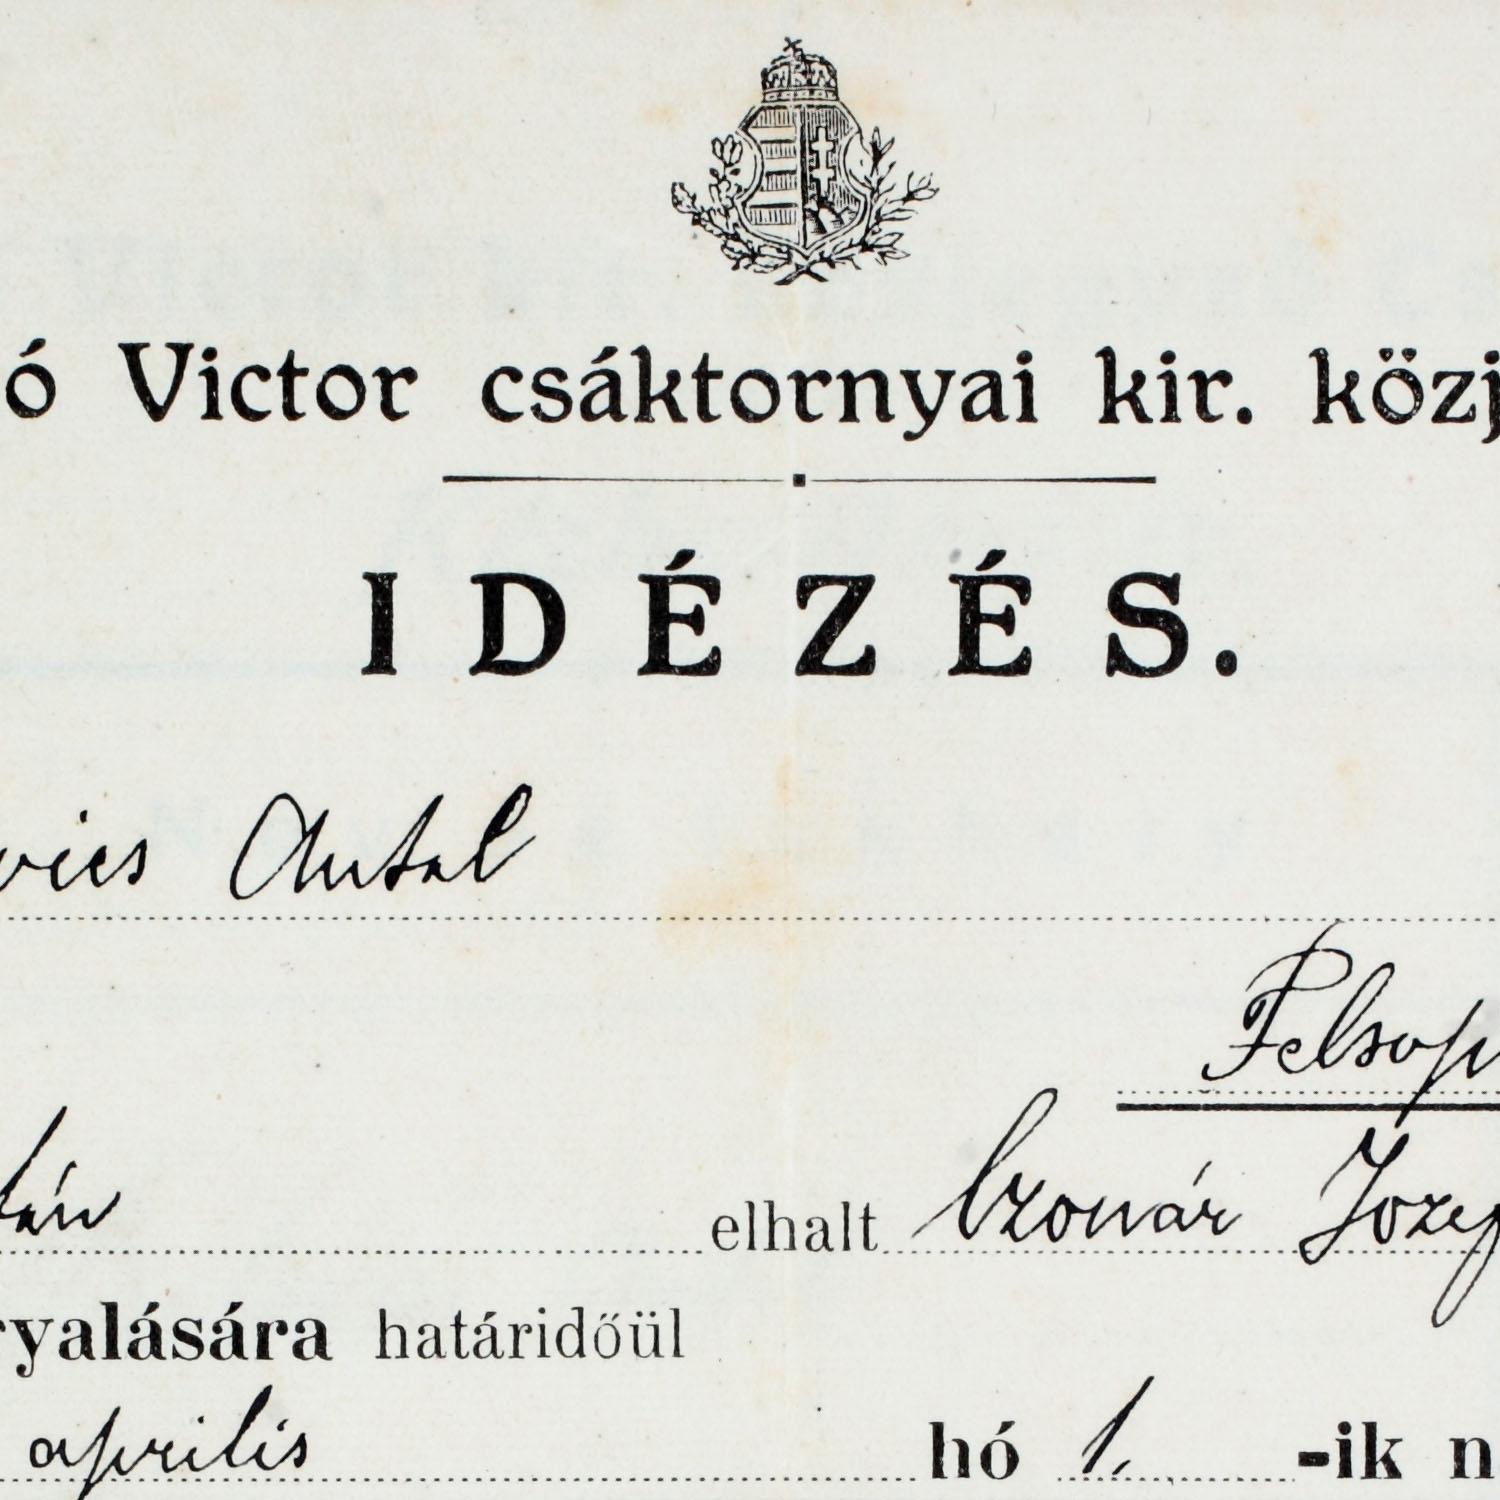 ó Victor csáktornyai kir. közj
IDÉZÉS.
vics Antal
Felsop
tán
elhalt Czonár Jozef
ryalására határidőül
április hó 1. -ik n